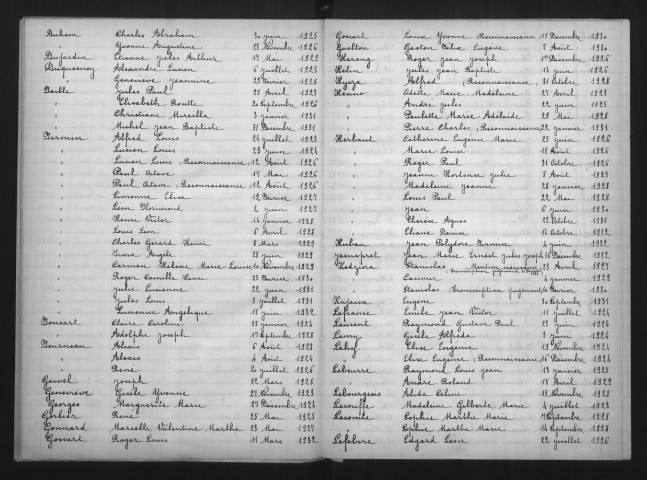 Duhem Charles Abraham 30 juin 1925
" Yvonne Augustine 23 Novembre 1926
Dujardin Etienne Jules Arthur 17 Mai 1929
Duquesnoy Alexandre Lucien 6 juillet 1925
" Geneviève Jeannine 29 Février 1928
Faille Jules Paul 25 Avril 1923
" Elisabeth Rosette 20 Septembre 1926
" Christiane Mireille 3 janvier 1931
" Michel Jean Baptiste 31 Décembre 1931
Firmin Alfred Louis 24 juillet 1923
" Lucien Louis 23 juin 1924
" Lucien Louis (Reconnaissance) 12 Août 1926
" Paul Octave 17 Mai 1926
" Paul Octave (Reconnaissance) 12 Août 1926
" Simonne Elise 12 Février 1927
" Léon Florimond 2 juin 1927
" Henri Victor 14 janvier 1928
" Louis Léon 6 Avril 1928
" Charles Gérard Henri 8 Mars 1929
" Irma Angèle 28 juin 1929
" Carmen Hélène Marie Louise 10 Novembre 1929
" Roger Camille Henri 25 Février 1930
" Julie Lucienne 22 juin 1931
" Jules Louis 8 juillet 1931
" Lucienne Angélique 18 juin 1932
Foucart Claire Caroline 23 janvier 1924
" Adolphe Joseph 17 Septembre 1928
Fourneau Alexis 6 Août 1923
" Alexis 4 Août 1924
" René 20 juillet 1926
Gawel Joseph 22 Mars 1928
Geneviève Gisèle Yvonne 27 Novembre 1923
Georges Marguerite Marie 27 Décembre 1924
Gorlier René 25 Mai 1925
Gonnard Marcelle Valentine Marthe 23 Mai 1927
Gossart Roger Louis 11 Mars 1932
Gossart Louise Yvonne (Reconnaissance) 18 Décembre 1930
Guelton Gaston Félix Eugène 5 Août 1930
Hareng Roger Jean Joseph 1er Décembre 1926
Helin Jules Jean Baptiste 14 juin 1926
Hyera Alfred (Reconnaissance) 31 Octobre 1928
Henno Odette Marie Madeleine 27 Avril 1923
" André Jules 22 juin 1925
" Paulette Marie Adélaïde 29 Mai 1928
" Pierre Charles (Reconnaissance) 22 janvier 1931
Herbaut Catherine Eugénie Marie 25 juin 1926
" Marie Louise 18 Août 1926
" Roger Paul 31 Octobre 1926
" Jeanne Hortense Julie 8 Août 1927
" Madeleine Jeanne 28 janvier 1928
" Louis Paul 22 Mai 1928
" Jean 6 juin 1930
" Thérèse Agnès 22 Octobre 1931
" Eliane Denise 14 Octobre 1932
Huban Jean Polydore Firmin 4 juin 1932
Jeansfret Jean Marie Ernest Jules Joseph 16 Décembre 1932
Kedziora Stanislas 25 Avril 1927
" Casimir 4 janvier 1929
" Stanislas (Transcription jugement) 10 Février 1930
Kujawa Eugène 30 Septembre 1931
Lafrance Emile Jean Victor 11 juillet 1924
Laurent Raymond Gustave Paul 23 juin 1925
Lamy Gisèle Alfréda 3 juin 1924
Lahy Elise Eugénie 13 Novembre 1924
Elise Eugénie (Reconnaissance) 16 Décembre 1924
Lebeurre Raymond Louis Jean 13 janvier 1925
" André Roland 15 Avril 1929
Lebourgeois Alida Céline 13 Novembre 1928
Lacouffe Madeleine Gilberte Marie 4 juillet 1923
Lecomte Sophie Marthe Marie 7 Septembre 1927
Sophie Marthe Marie 14 Septembre 1928
Lefebvre Edgard Léon 22 juillet 1926